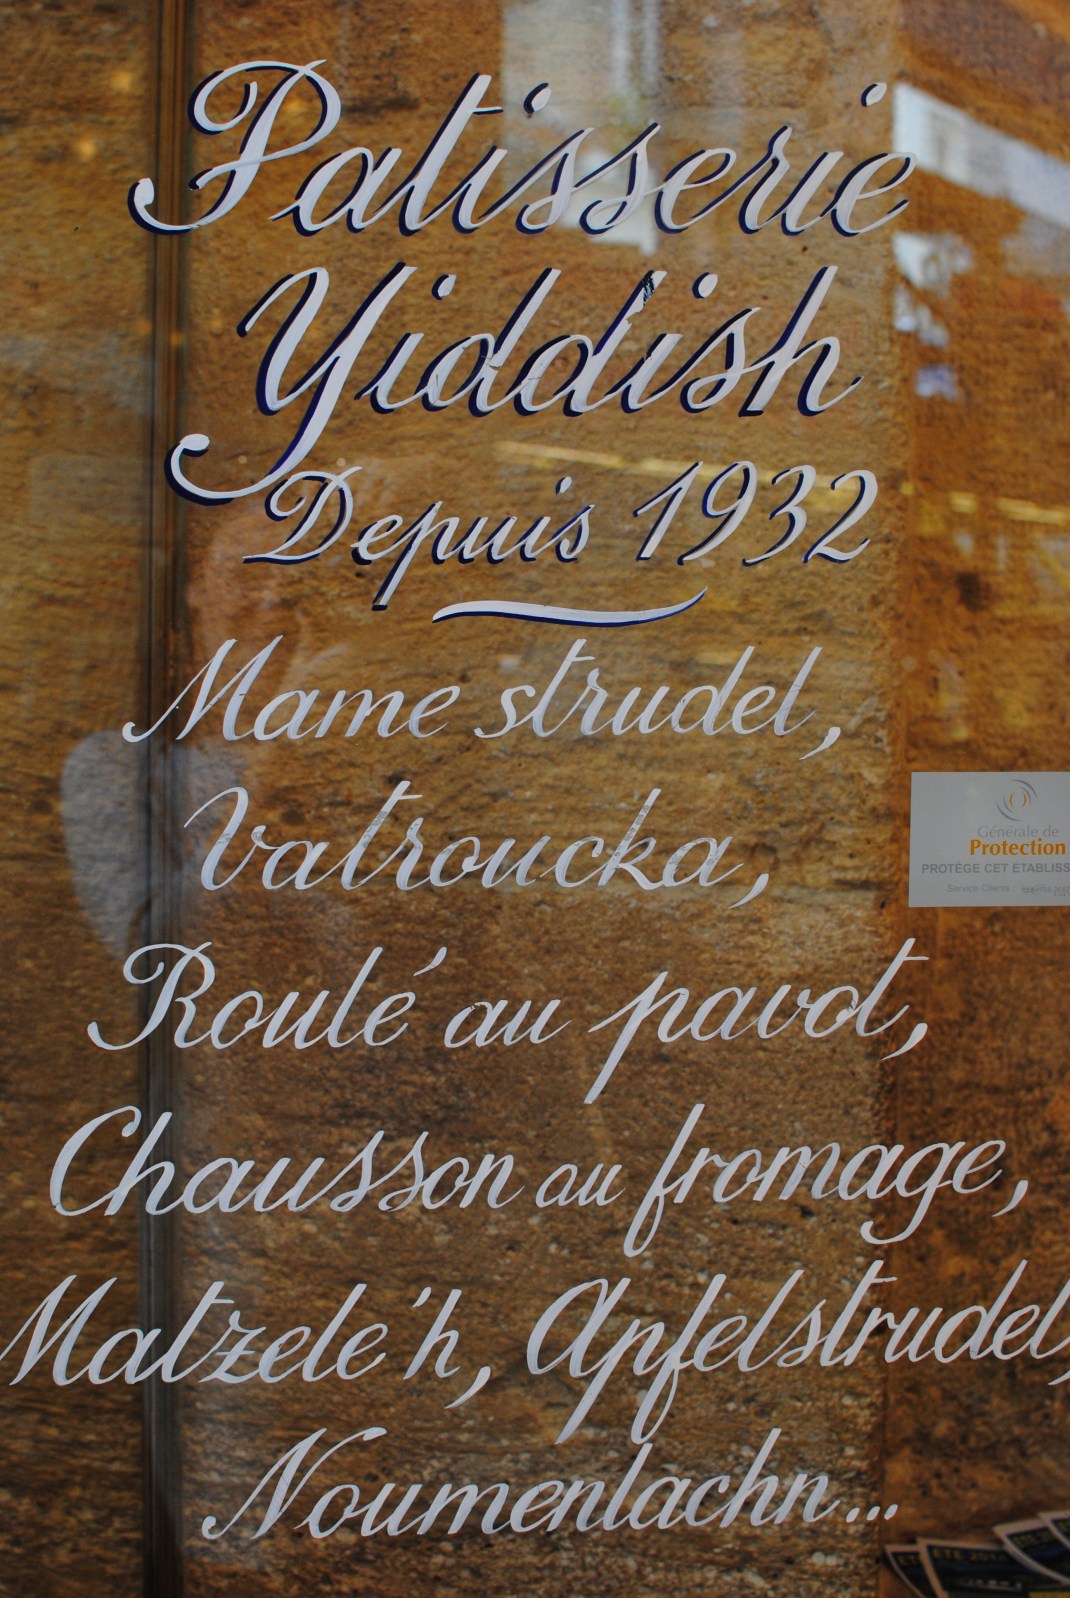 Patisserie
Yiddish
Depuis 1932
Mame strudel,
Vatroucka,
Roulé au pavot,
Chausson au fromage,
Matzele'h, Apfelstrudel,
Noumenlachn...
Générale de
Protection
PROTÈGE CET ÉTABLISS
Service Clients :
ÉTÉ 201